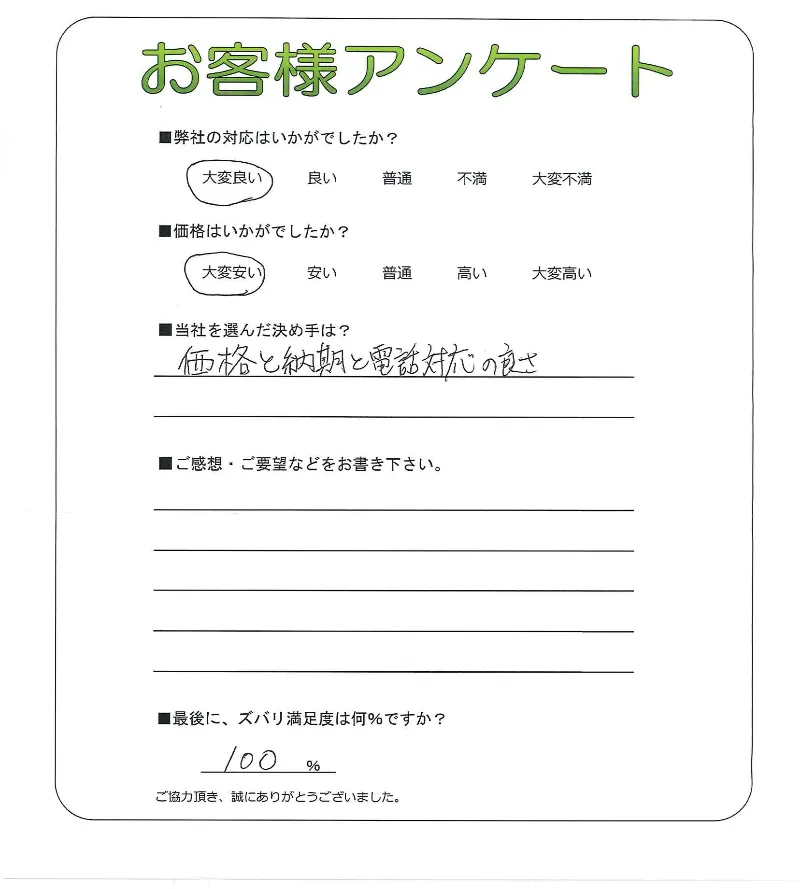 お客様アンケート
■弊社の対応はいかがでしたか？
大変良い 良い 普通 不満 大変不満
■価格はいかがでしたか？
大変安い 安い 普通 高い 大変高い
■当社を選んだ決め手は？
価格と納期と電話対応の良さ
■ご感想・ご要望などをお書き下さい。
■最後に、ズバリ満足度は何%ですか？
100 %
ご協力頂き、誠にありがとうございました。